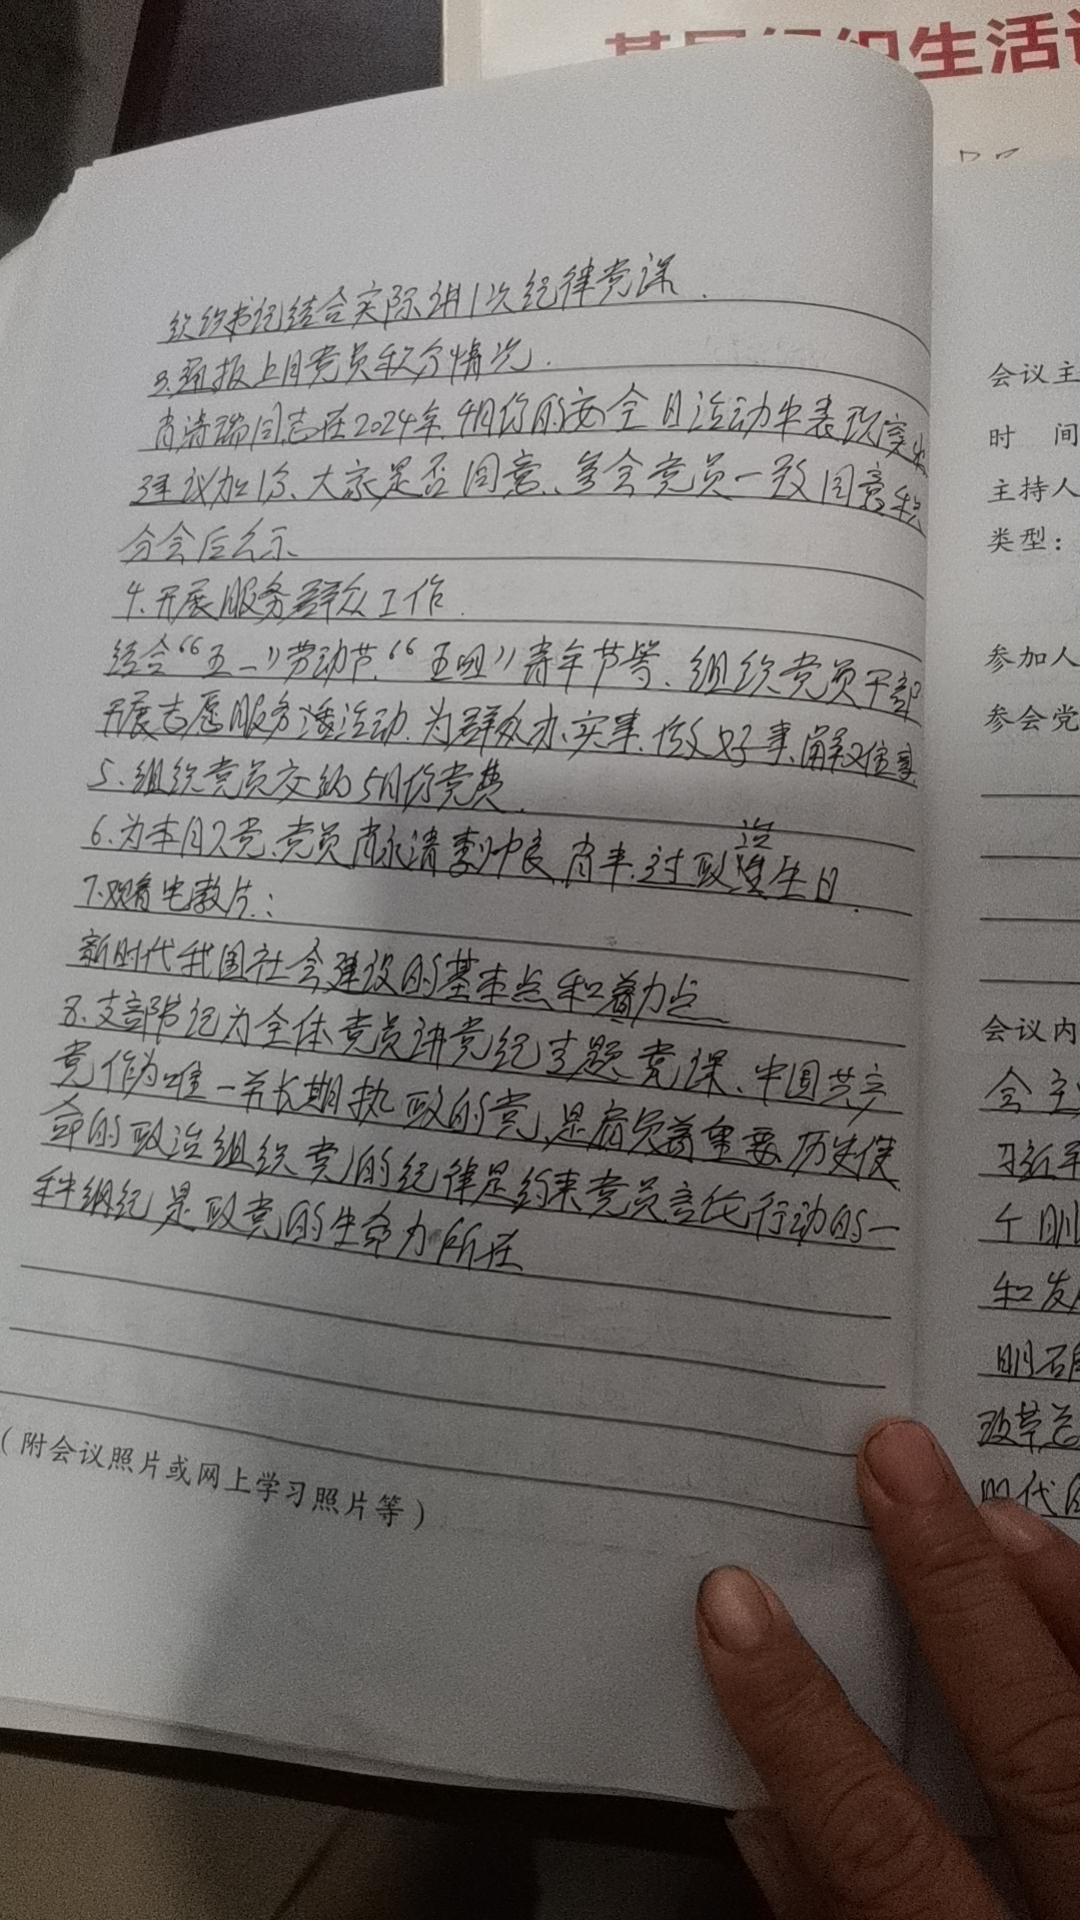 基层组织生活
织的书记结合实际讲1次纪律党课.
3.通报上月党员积分情况.
肖清瑞同志在2024年4月份的安全日活动中表现突出
建议加1分、大家是否同意、参会党员一致同意积
分会后公示
4.开展服务群众工作.
结合“五一”劳动节、“五四”青年节等、组织党员干部
开展志愿服务活动.为群众办实事、做好事、解
5.组织党员交纳5月份党费.
6.为本月入党、党员肖永清 肖丰.过政治生日.
7.观看电教片:
新时代我国社会建设的基本点和着力点
8.支部书记为全体党员讲党纪主题党课、中国共产
党作为唯一长期执政的党,是肩负着重要历史使
命的政治组织党的纪律是约束党员言论行动的一
种纲纪是政党的生命力所在
(附会议照片或网上学习照片等)
会议主
时 间
主持人
类型:
参加人
参会党
会议内
会主
习近平
个
和发
明确
改革总
时代